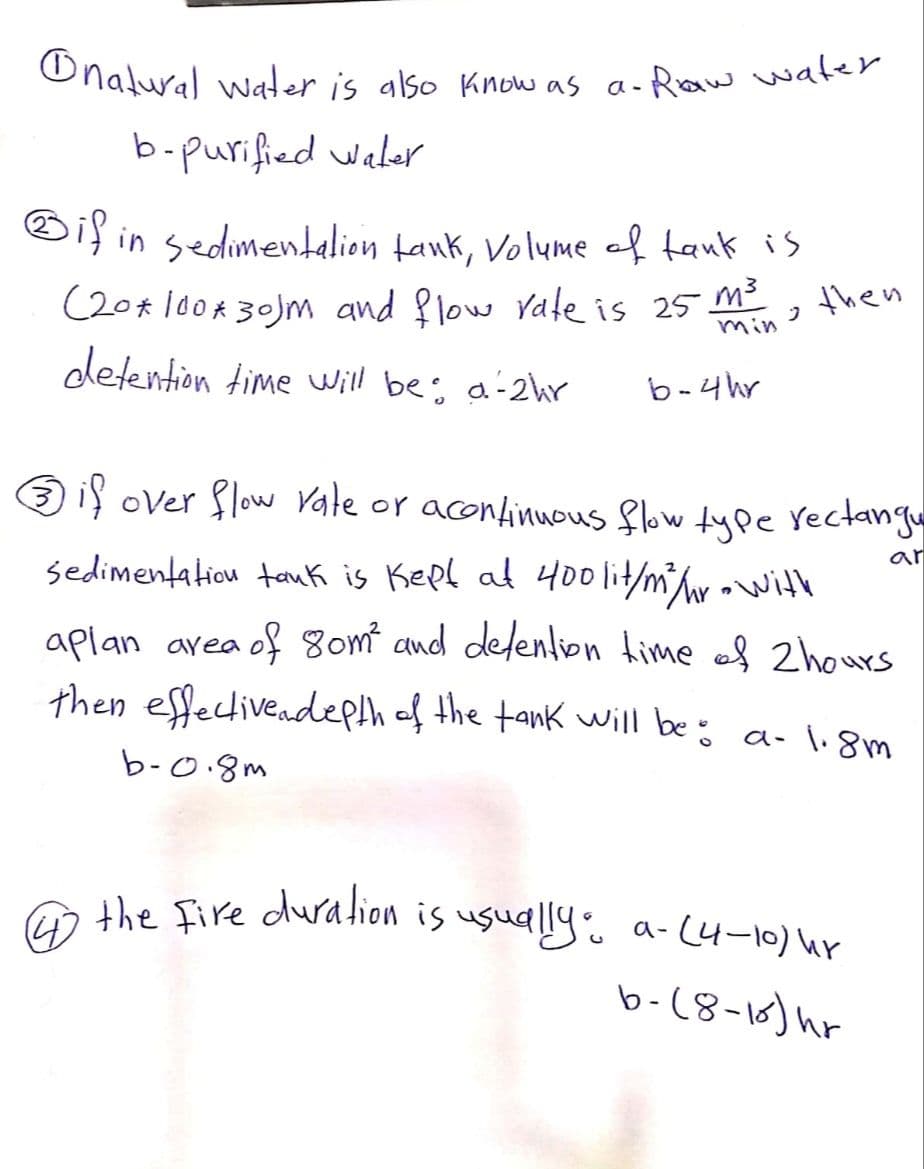 ① natural water is also Know as a- Raw water
b- purified water
② if in sedimentation tank, Volume of tank is
(20* 100* 30)m and flow rate is 25 m³/min, then
detention time will be: a-2hr b-4hr
③ if over flow rate or acontinuous flow type rectangu
ar
sedimentation tank is Kept at 400 lit/m²/hr. with
aplan area of 80m² and detention time of 2hours
then effective depth of the tank will be: a- 1.8m
b-0.8m
④ the Fire duration is usually: a-(4-10) hr
b-(8- ) hr